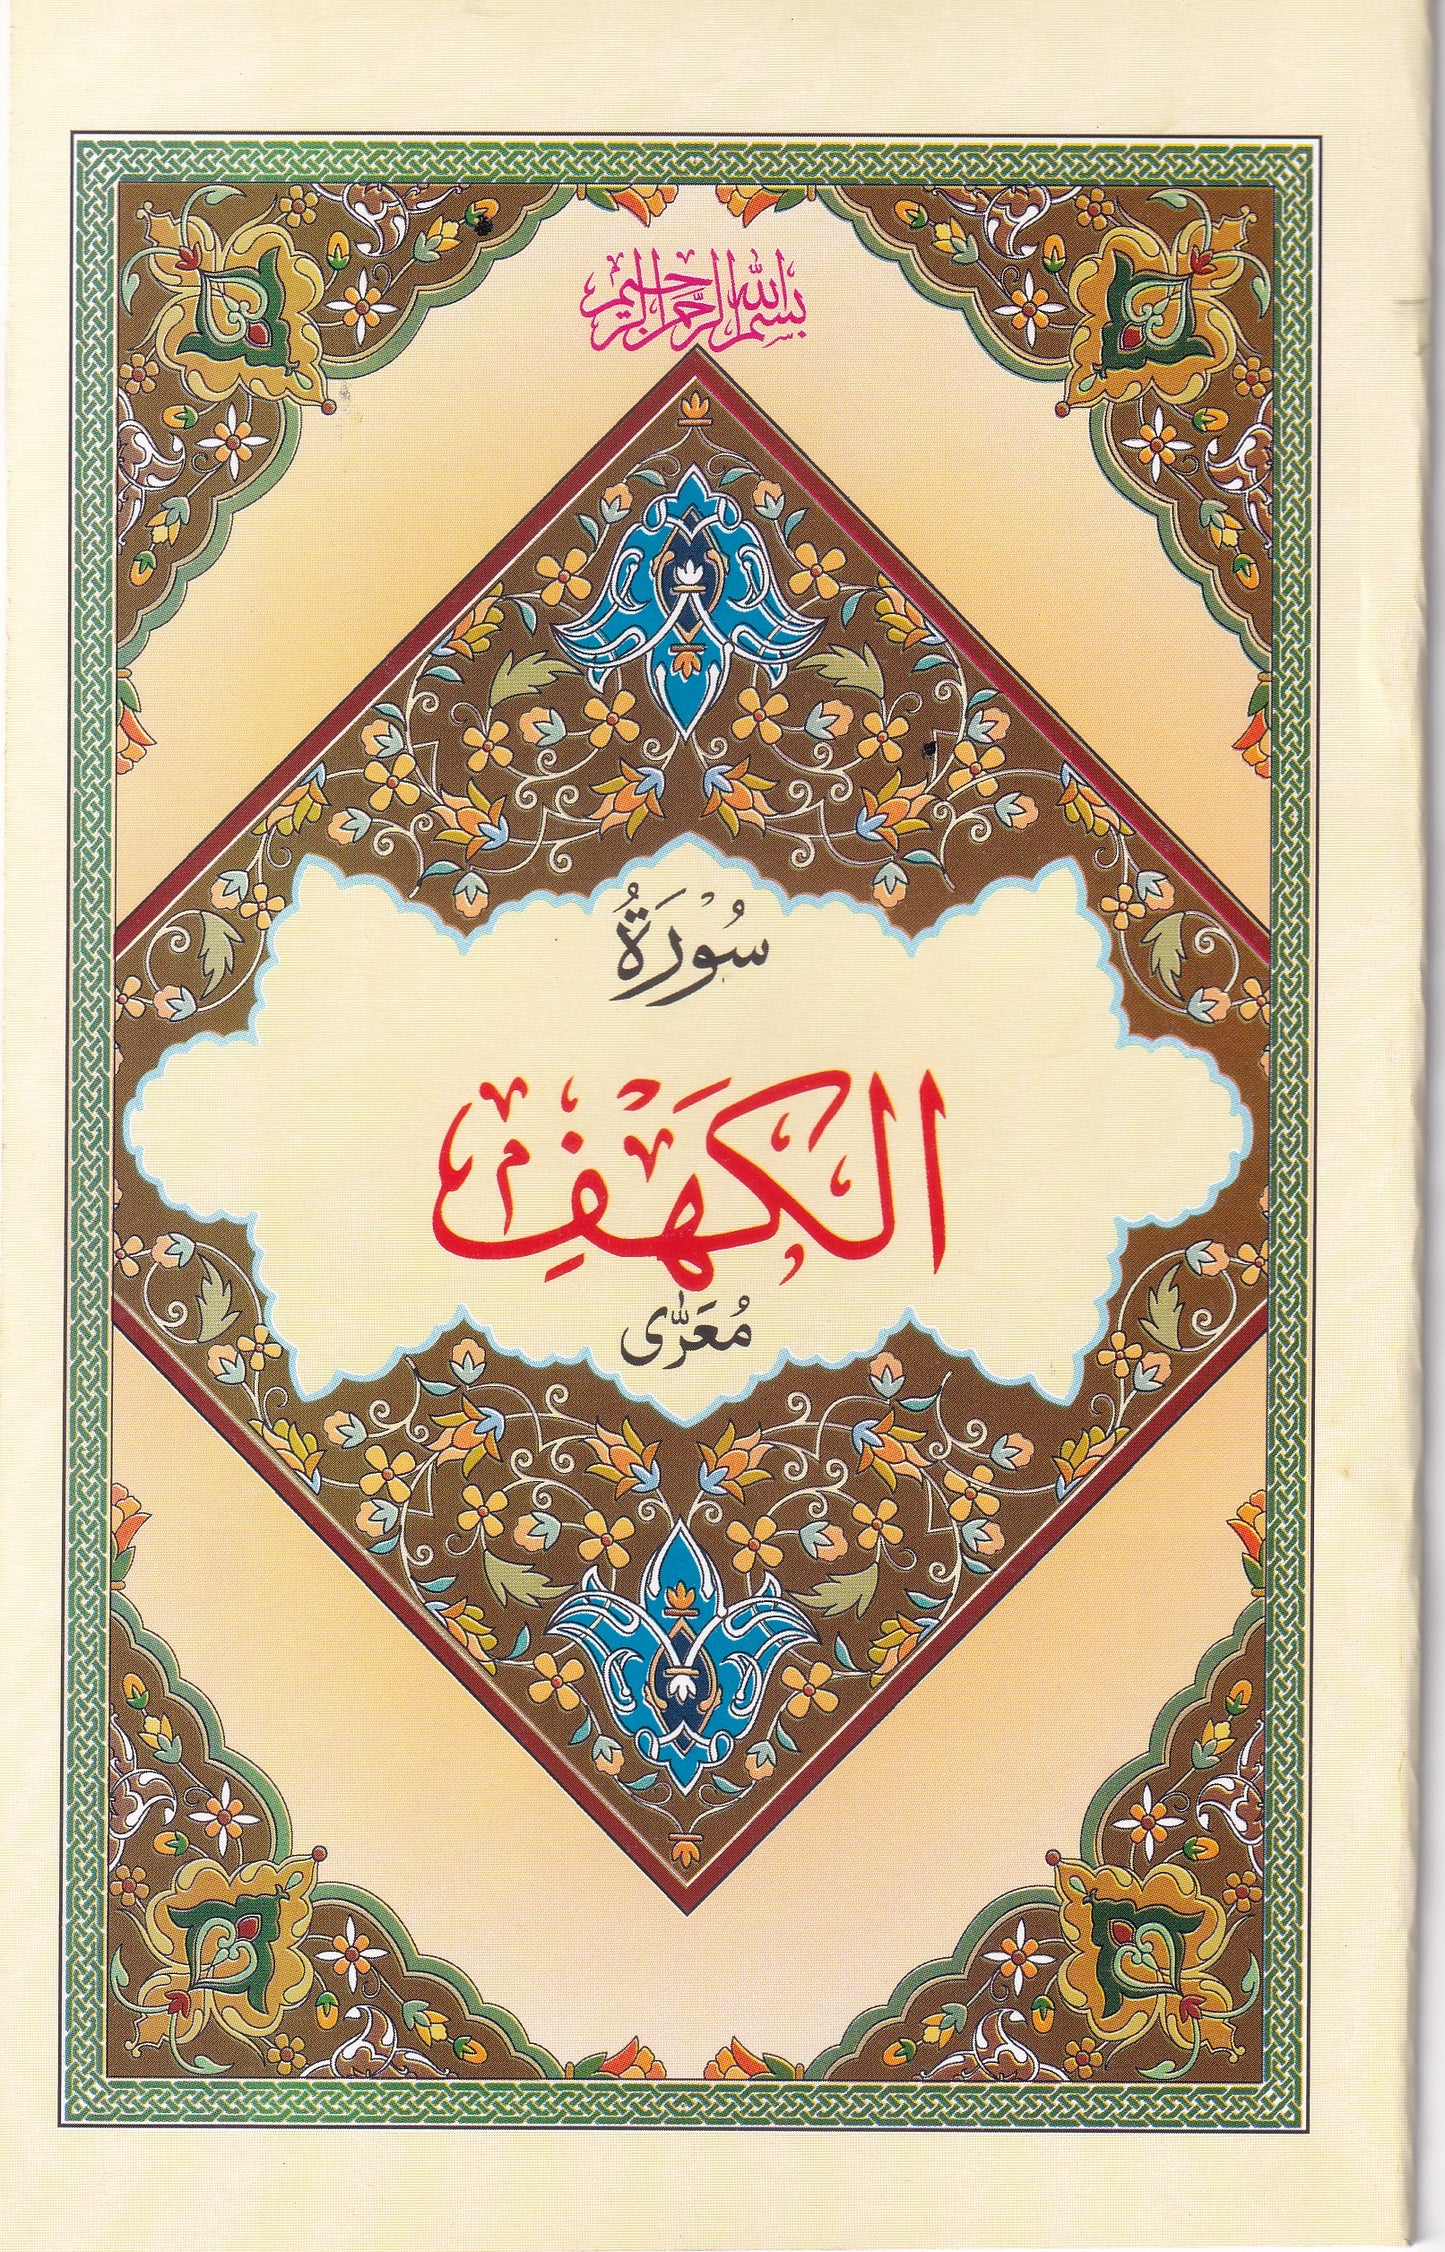 بسم الله الرحمن الرحيم
سُوْرَةُ
الكَهَفِ
مُعَرّٰی